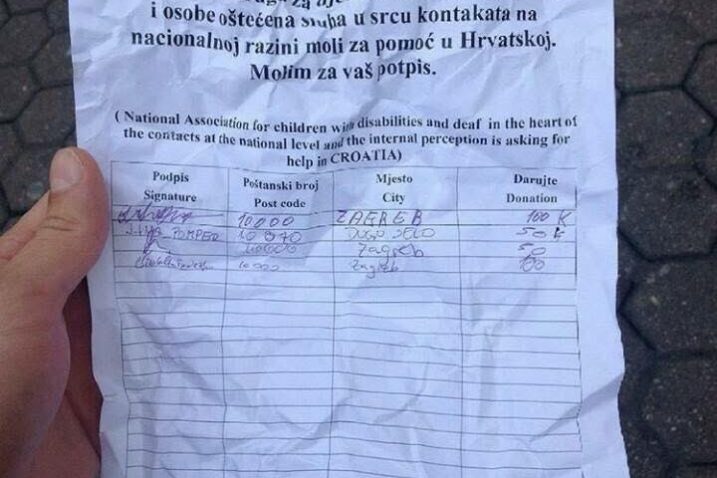 i osobe oštećena sluha u srcu kontakata na
nacionalnoj razini moli za pomoć u Hrvatskoj.
Molim za vaš potpis.
( National Association for children with disabilities and deaf in the heart of
the contacts at the national level and the internal perception is asking for
help in CROATIA)
Podpis Poštanski broj Mjesto Darujte
Signature Post code City Donation
10000 ZAGREB 100 K
POMPEO 10370 DUGO SELO 50 K
10000 Zagreb 50
10000 Zagreb 100